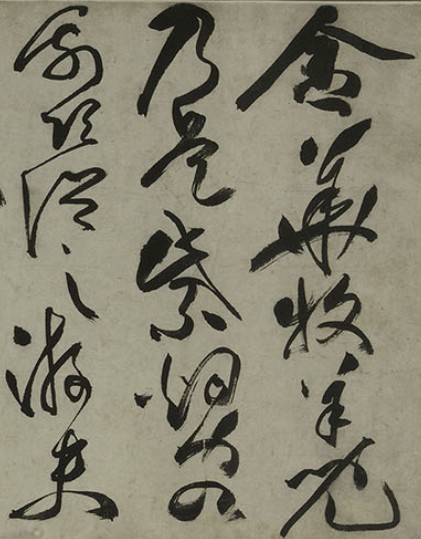 金華牧羊兒
乃是紫烟客
我願從之游未